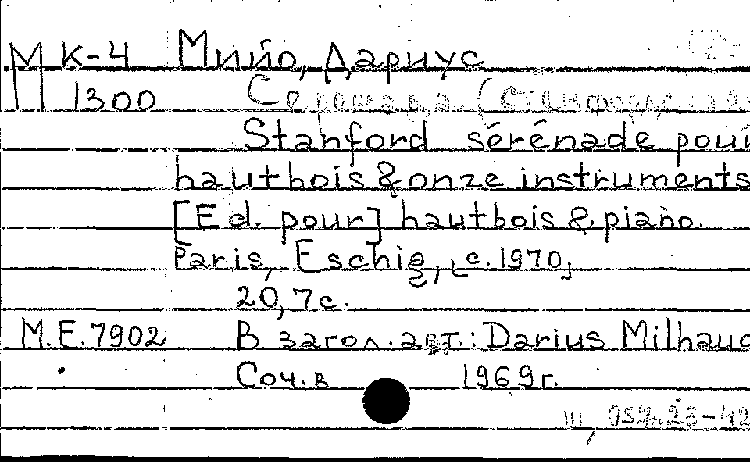 М К-4 Мийо, Дариус
1300 Серенада
Stanford sérénade pour
hautbois & onze instruments
[Ed. pour] hautbois & piano.
Paris, Eschig, [c.1970]
20, 7 с.
M.E.7902 В загол. авт.: Darius Milhaud
Соч. в 1969 г.